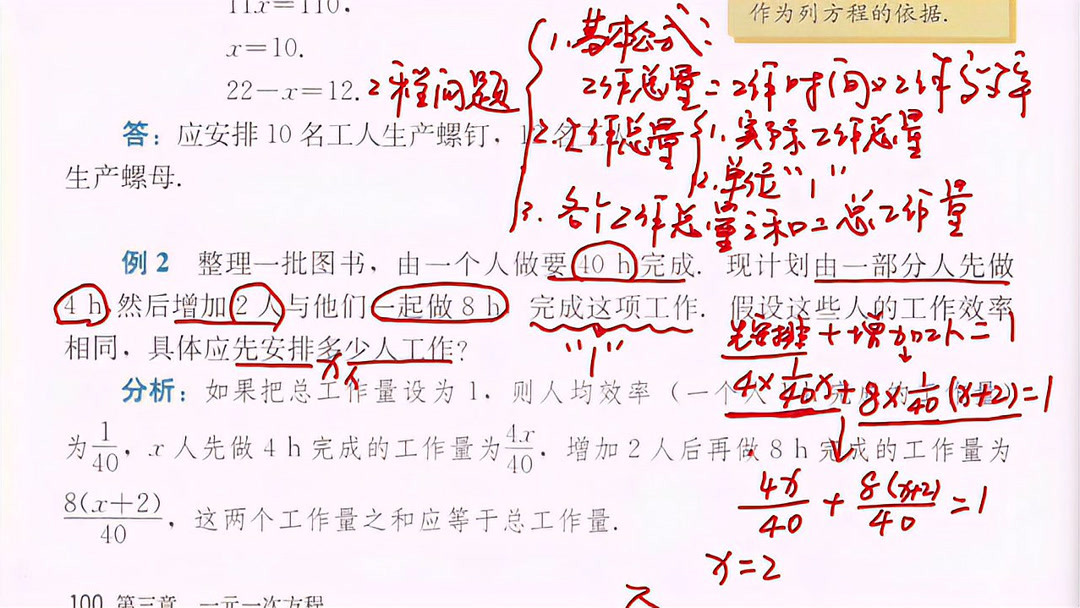 11x=110,
x=10.
22－x=12.
答：应安排 10 名工人生产螺钉，
生产螺母.
作为列方程的依据.
工程问题
1. 基本公式：
工作总量＝工作时间×工作效率
2. 工作总量
1. 实际工作总量
2. 单位“1”
3. 各个工作总量之和＝总工作量
例 2 整理一批图书，由一个人做要 40 h 完成. 现计划由一部分人先做
4 h，然后增加 2 人与他们一起做 8 h，完成这项工作. 假设这些人的工作效率
相同，具体应先安排多少人工作？
x人
“1”
先安排＋增加2人＝1
4×1/40x＋8×1/40(x+2)=1
4x/40＋8(x+2)/40=1
x=2
分析：如果把总工作量设为 1，则人均效率（一个人
为1/40，x 人先做 4 h 完成的工作量为4x/40，增加 2 人后再做 8 h 完成的工作量为
8(x+2)/40，这两个工作量之和应等于总工作量.
100 第三章 一元一次方程